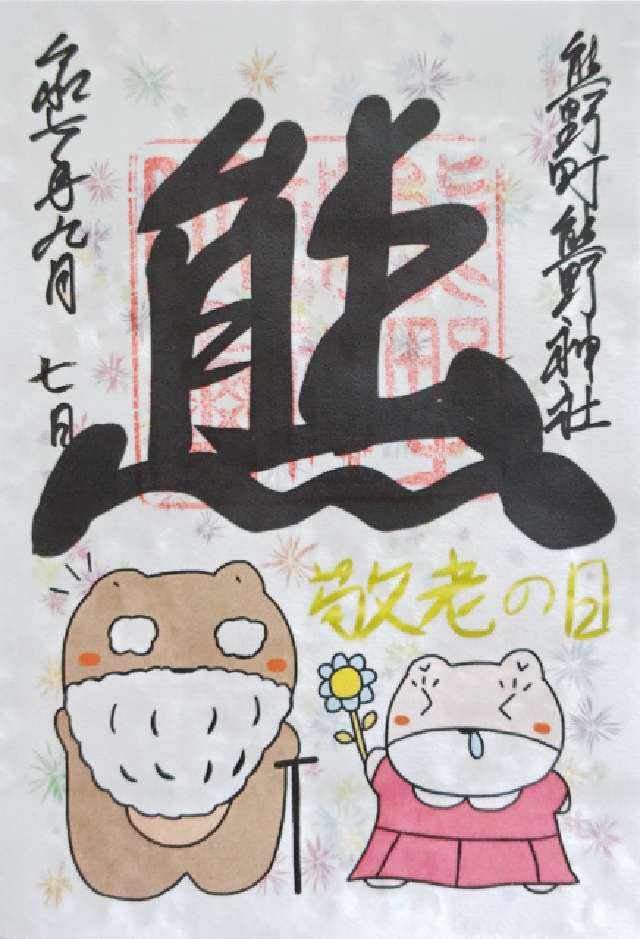 熊野町熊野神社
熊
令和七年九月 七日
敬老の日